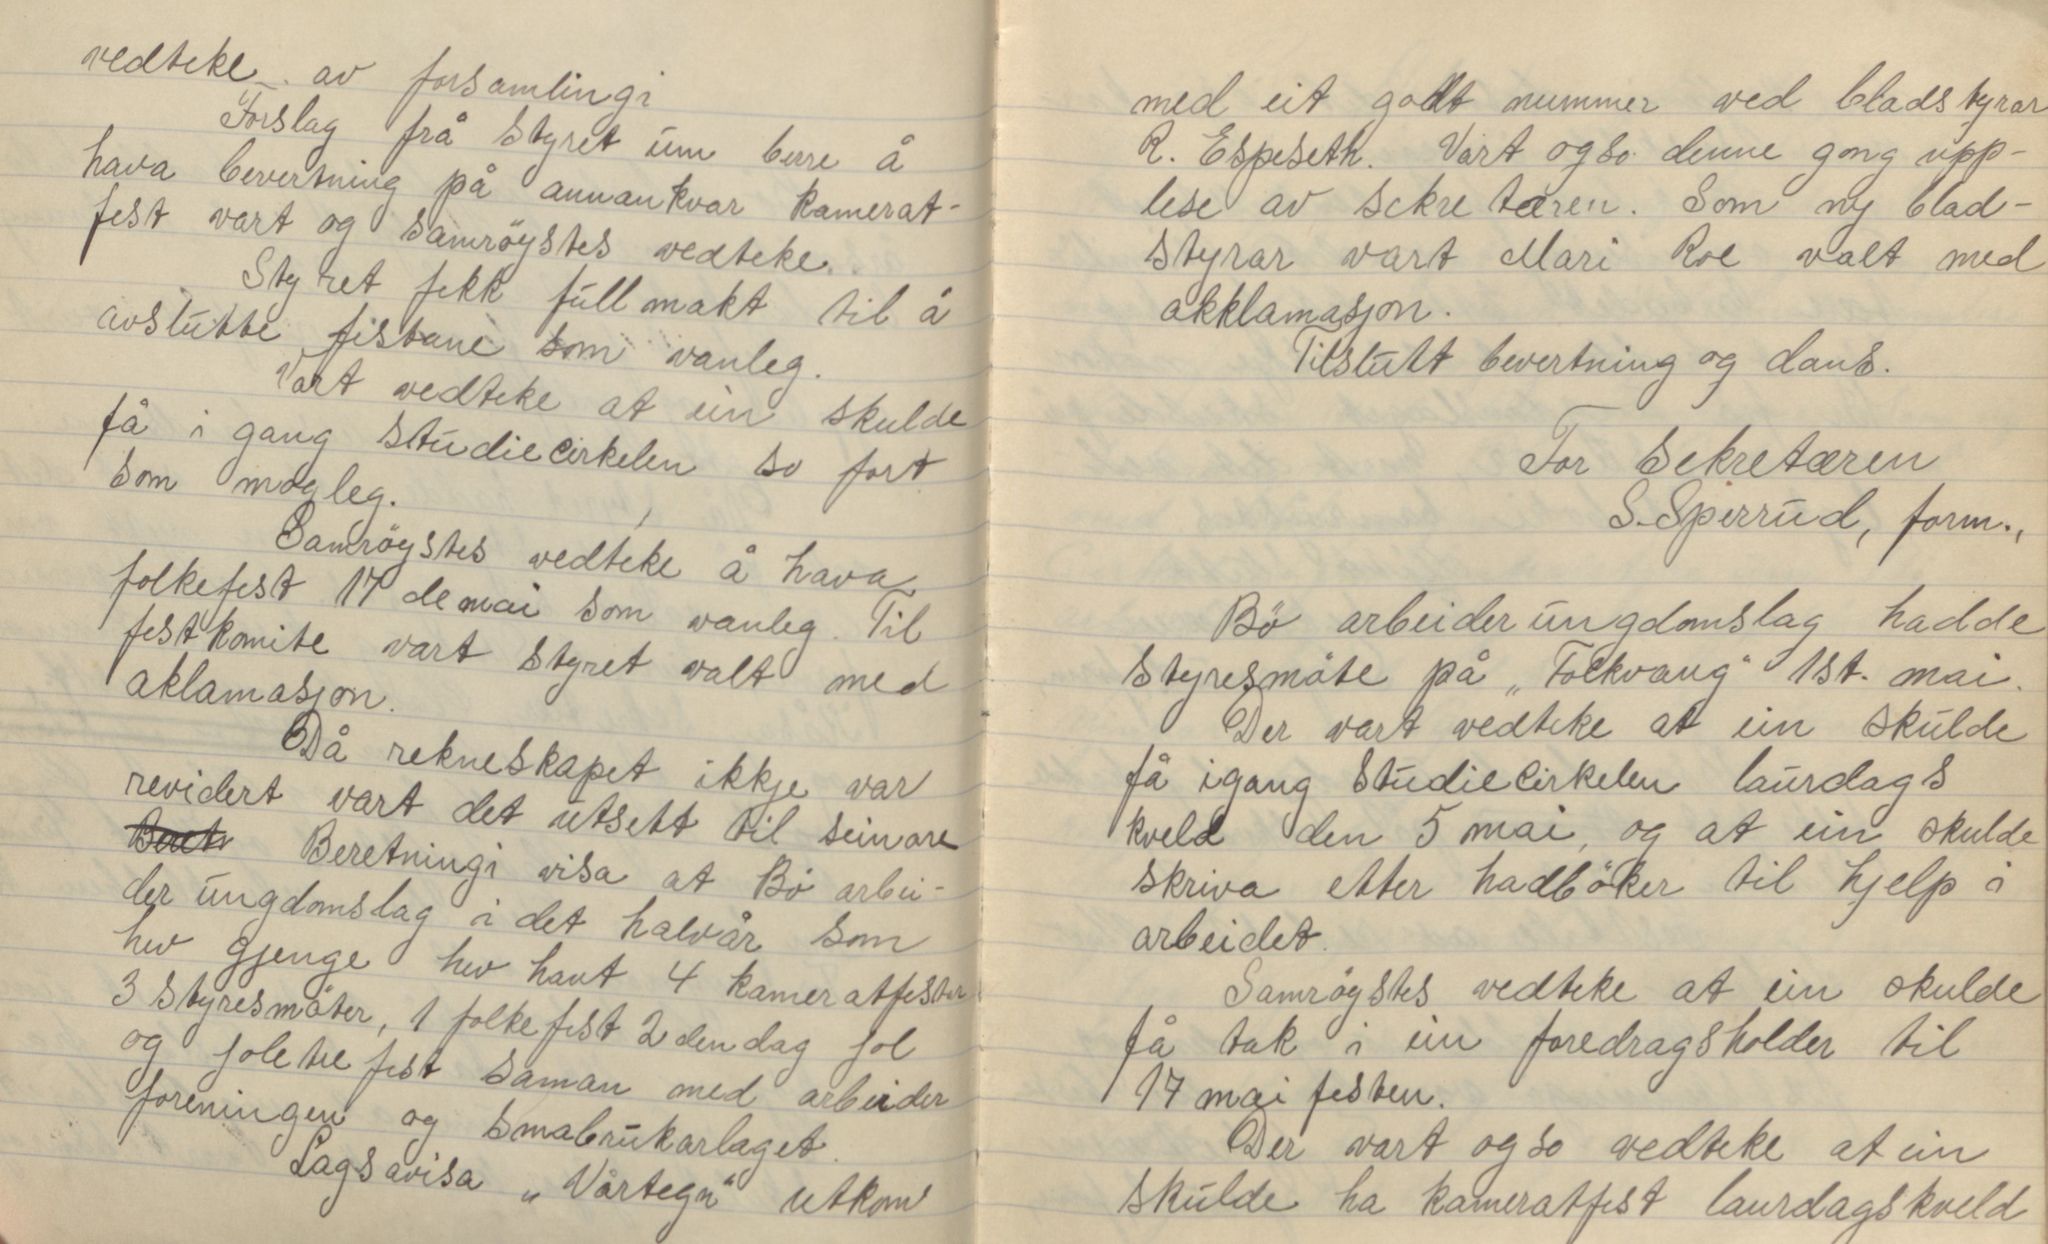 vedteke av forsamlingi
Forslag frå styret um berre å
hava bevertning på annankvar kamerat-
fest vart og samröystes vedteke.
Styret fekk fullmakt til å
avslutte festane som vanleg.
Vart vedteke at ein skulde
få i gang studiecirkelen so fort
som mogleg.
Samröystes vedteke å hava
folkefest 17 de mai som vanleg. Til
festkomite vart styret valt med
aklamasjon.
Då rekneskapet ikkje var
revidert vart det utsett til seinare
Beretningi visa at Bö arbei-
der ungdomslag i det halvår som
hev gjenge hev havt 4 kameratfester
3 styresmöter, 1 folkefest 2 den dag jol
og joletrefest saman med arbeider
foreningen og smabrukarlaget.
Lagsavisa „Vårtegn" utkom
med eit godt nummer ved bladstyrar
R. Espeseth. Vart ogso denne gong upp-
lese av sekretæren. Som ny blad-
styrar vart Mari Roe valt med
akklamasjon.
Tilslutt bevertning og dans.
For sekretæren
S. Sperrud, form.,
Bö arbeiderungdomslag hadde
styresmöte på „Folkvang" 1st. mai.
Der vart vedteke at ein skulde
få igang studiecirkelen laurdags
kveld den 5 mai, og at ein skulde
skriva etter hadböker til hjelp i
arbeidet.
Samröystes vedteke at ein skulde
få tak i ein foredragsholder til
17 mai festen.
Der vart ogso vedteke at ein
skulde ha kameratfest laurdagskveld